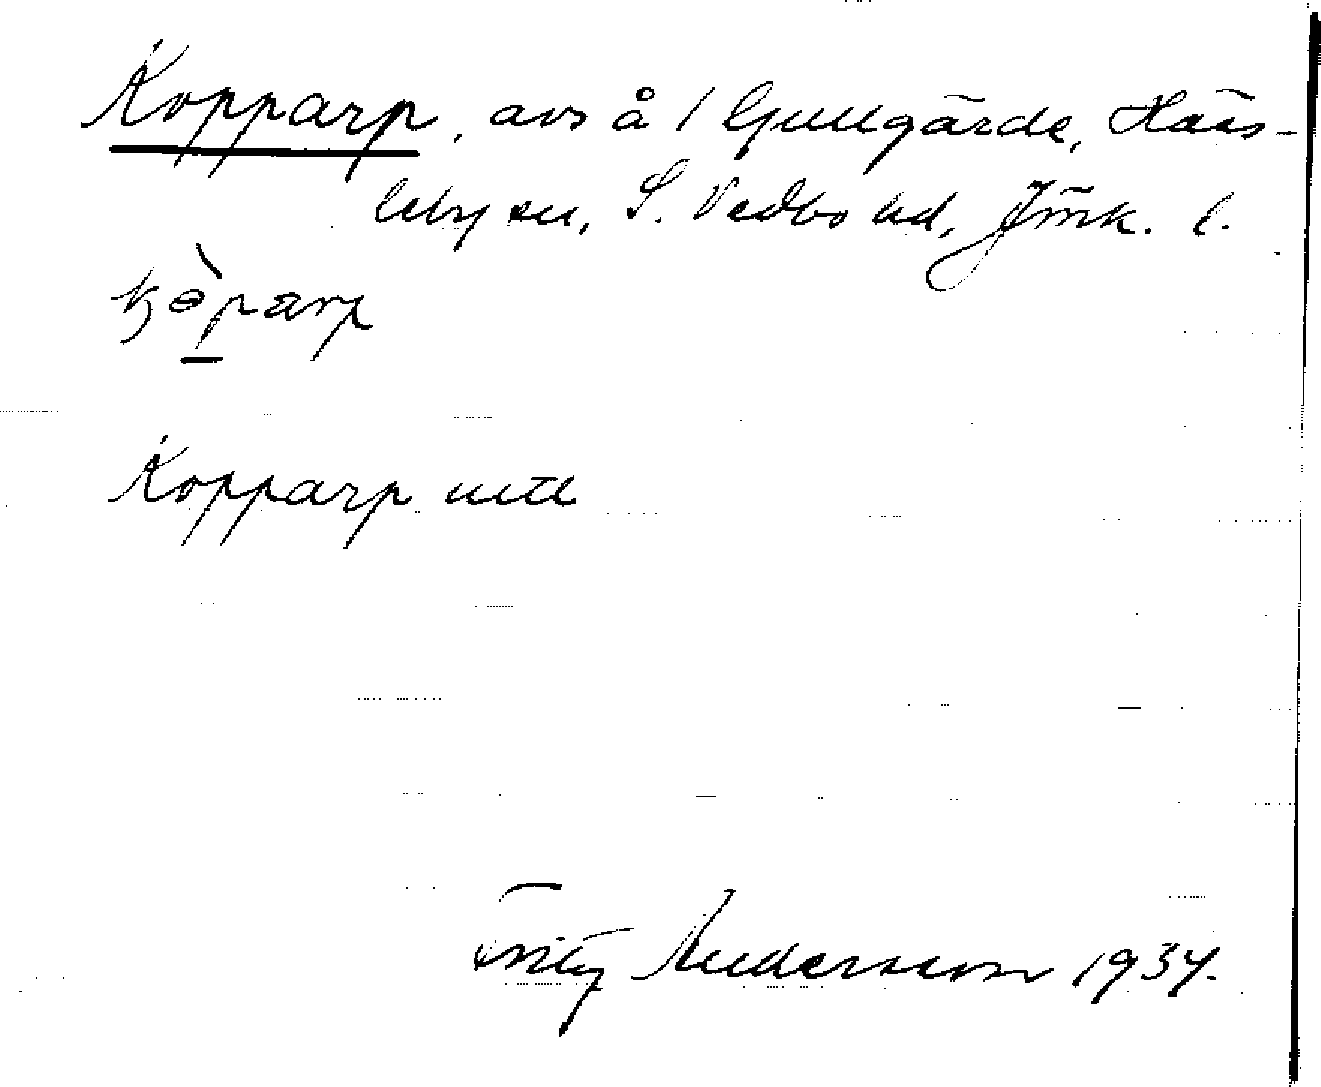 Kopparp, avs å / Gullgärde, Häss-
leby sn, S. Vedbo hd, Jönk. l.
Kopparp
Fritz Andersson 1934.